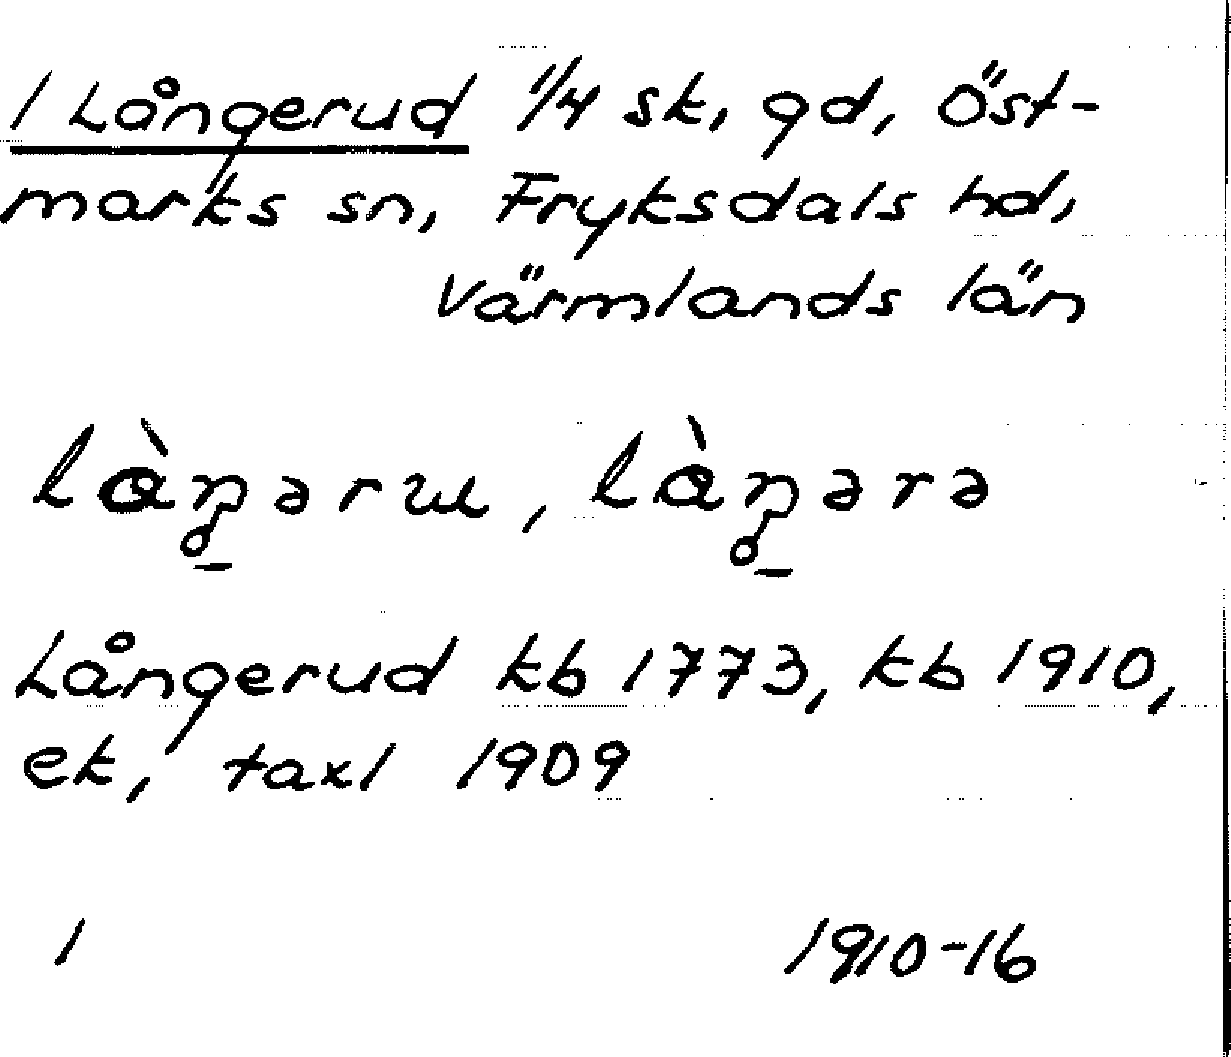 1 Långerud 1/4 sk, gd, Öst-
marks sn, Fryksdals hd,
Värmlands län
làŋ̱əruɯ, làŋ̱ərə
Långerud kb 1773, kb 1910,
ek, taxl 1909
1 1910-16